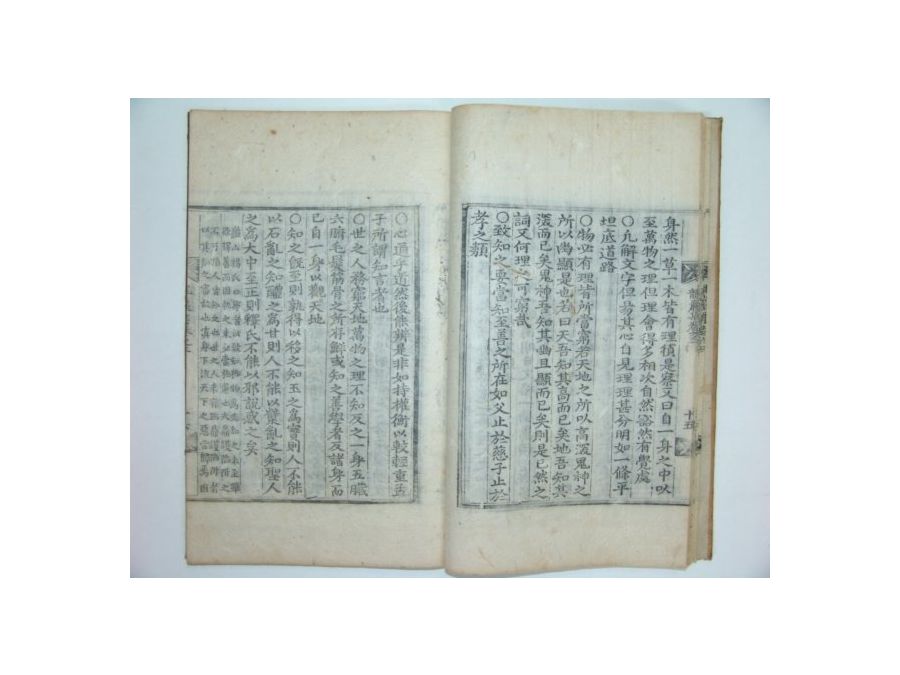 身然一草一木皆有理須是察又曰自一身之中以
至萬物之理但理會得多相次自然豁然有覺處
○凡解文字但易其心自見理理甚分明如一條平
坦底道路
○物必有理皆所當窮若天地之所以高深鬼神之
所以幽顯是也若曰天吾知其高而已矣地吾知其
深而已矣鬼神吾知其幽且顯而已矣則是已然之
詞又何理之可窮哉
○致知之要當知至善之所在如父止於慈子止於
孝之類
十五
○心通乎道然後能辨是非如持權衡以較輕重孟
子所謂知言者也
○世之人務窮天地萬物之理不知反之一身五臟
六腑毛髮筋骨之所存鮮或知之善學者反諸身而
已自一身以觀天地
○知之既至則孰得以移之知玉之爲寶則人不能
以石亂之知醴之爲甘則人不能以糱亂之知聖人
之爲大中至正則釋氏不能以邪說惑之矣